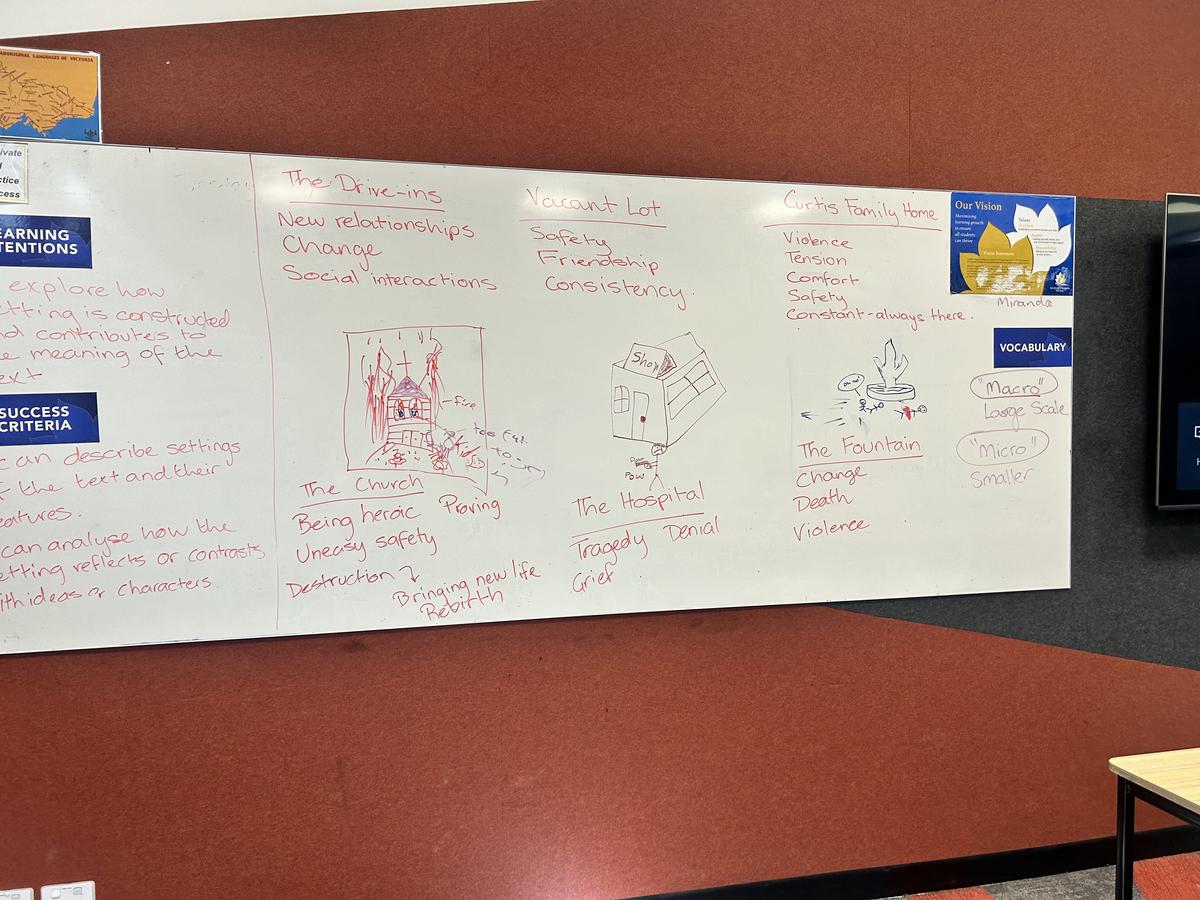 ABORIGINAL LANGUAGES OF VICTORIA
ivate
ctice
cess
EARNING
TENTIONS
explore how
etting is constructed
nd contributes to
e meaning of the
ext
SUCCESS
CRITERIA
can describe settings
f the text and their
eatures.
can analyse how the
etting reflects or contrasts
ith ideas or characters
The Drive-ins
New relationships
Change
Social interactions
fire
The Church
Being heroic Proving
Uneasy safety
Destruction
Bringing new life
Rebirth
Vacant Lot
Safety
Friendship
Consistency.
Shop
Pow
The Hospital
Tragedy Denial
Grief
Curtis Family Home
Violence
Tension
Comfort
Safety
Constant-always there.
oh no!
The Fountain
Change
Death
Violence
Our Vision
Maximising
learning growth
to ensure
all students
can thrive
Values
Miranda
VOCABULARY
"Macro"
Large Scale
"Micro"
Smaller